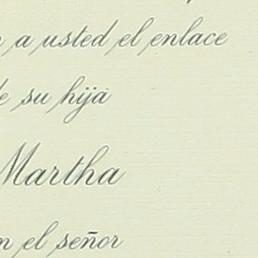 a usted el enlace
su hija
Martha
el señor